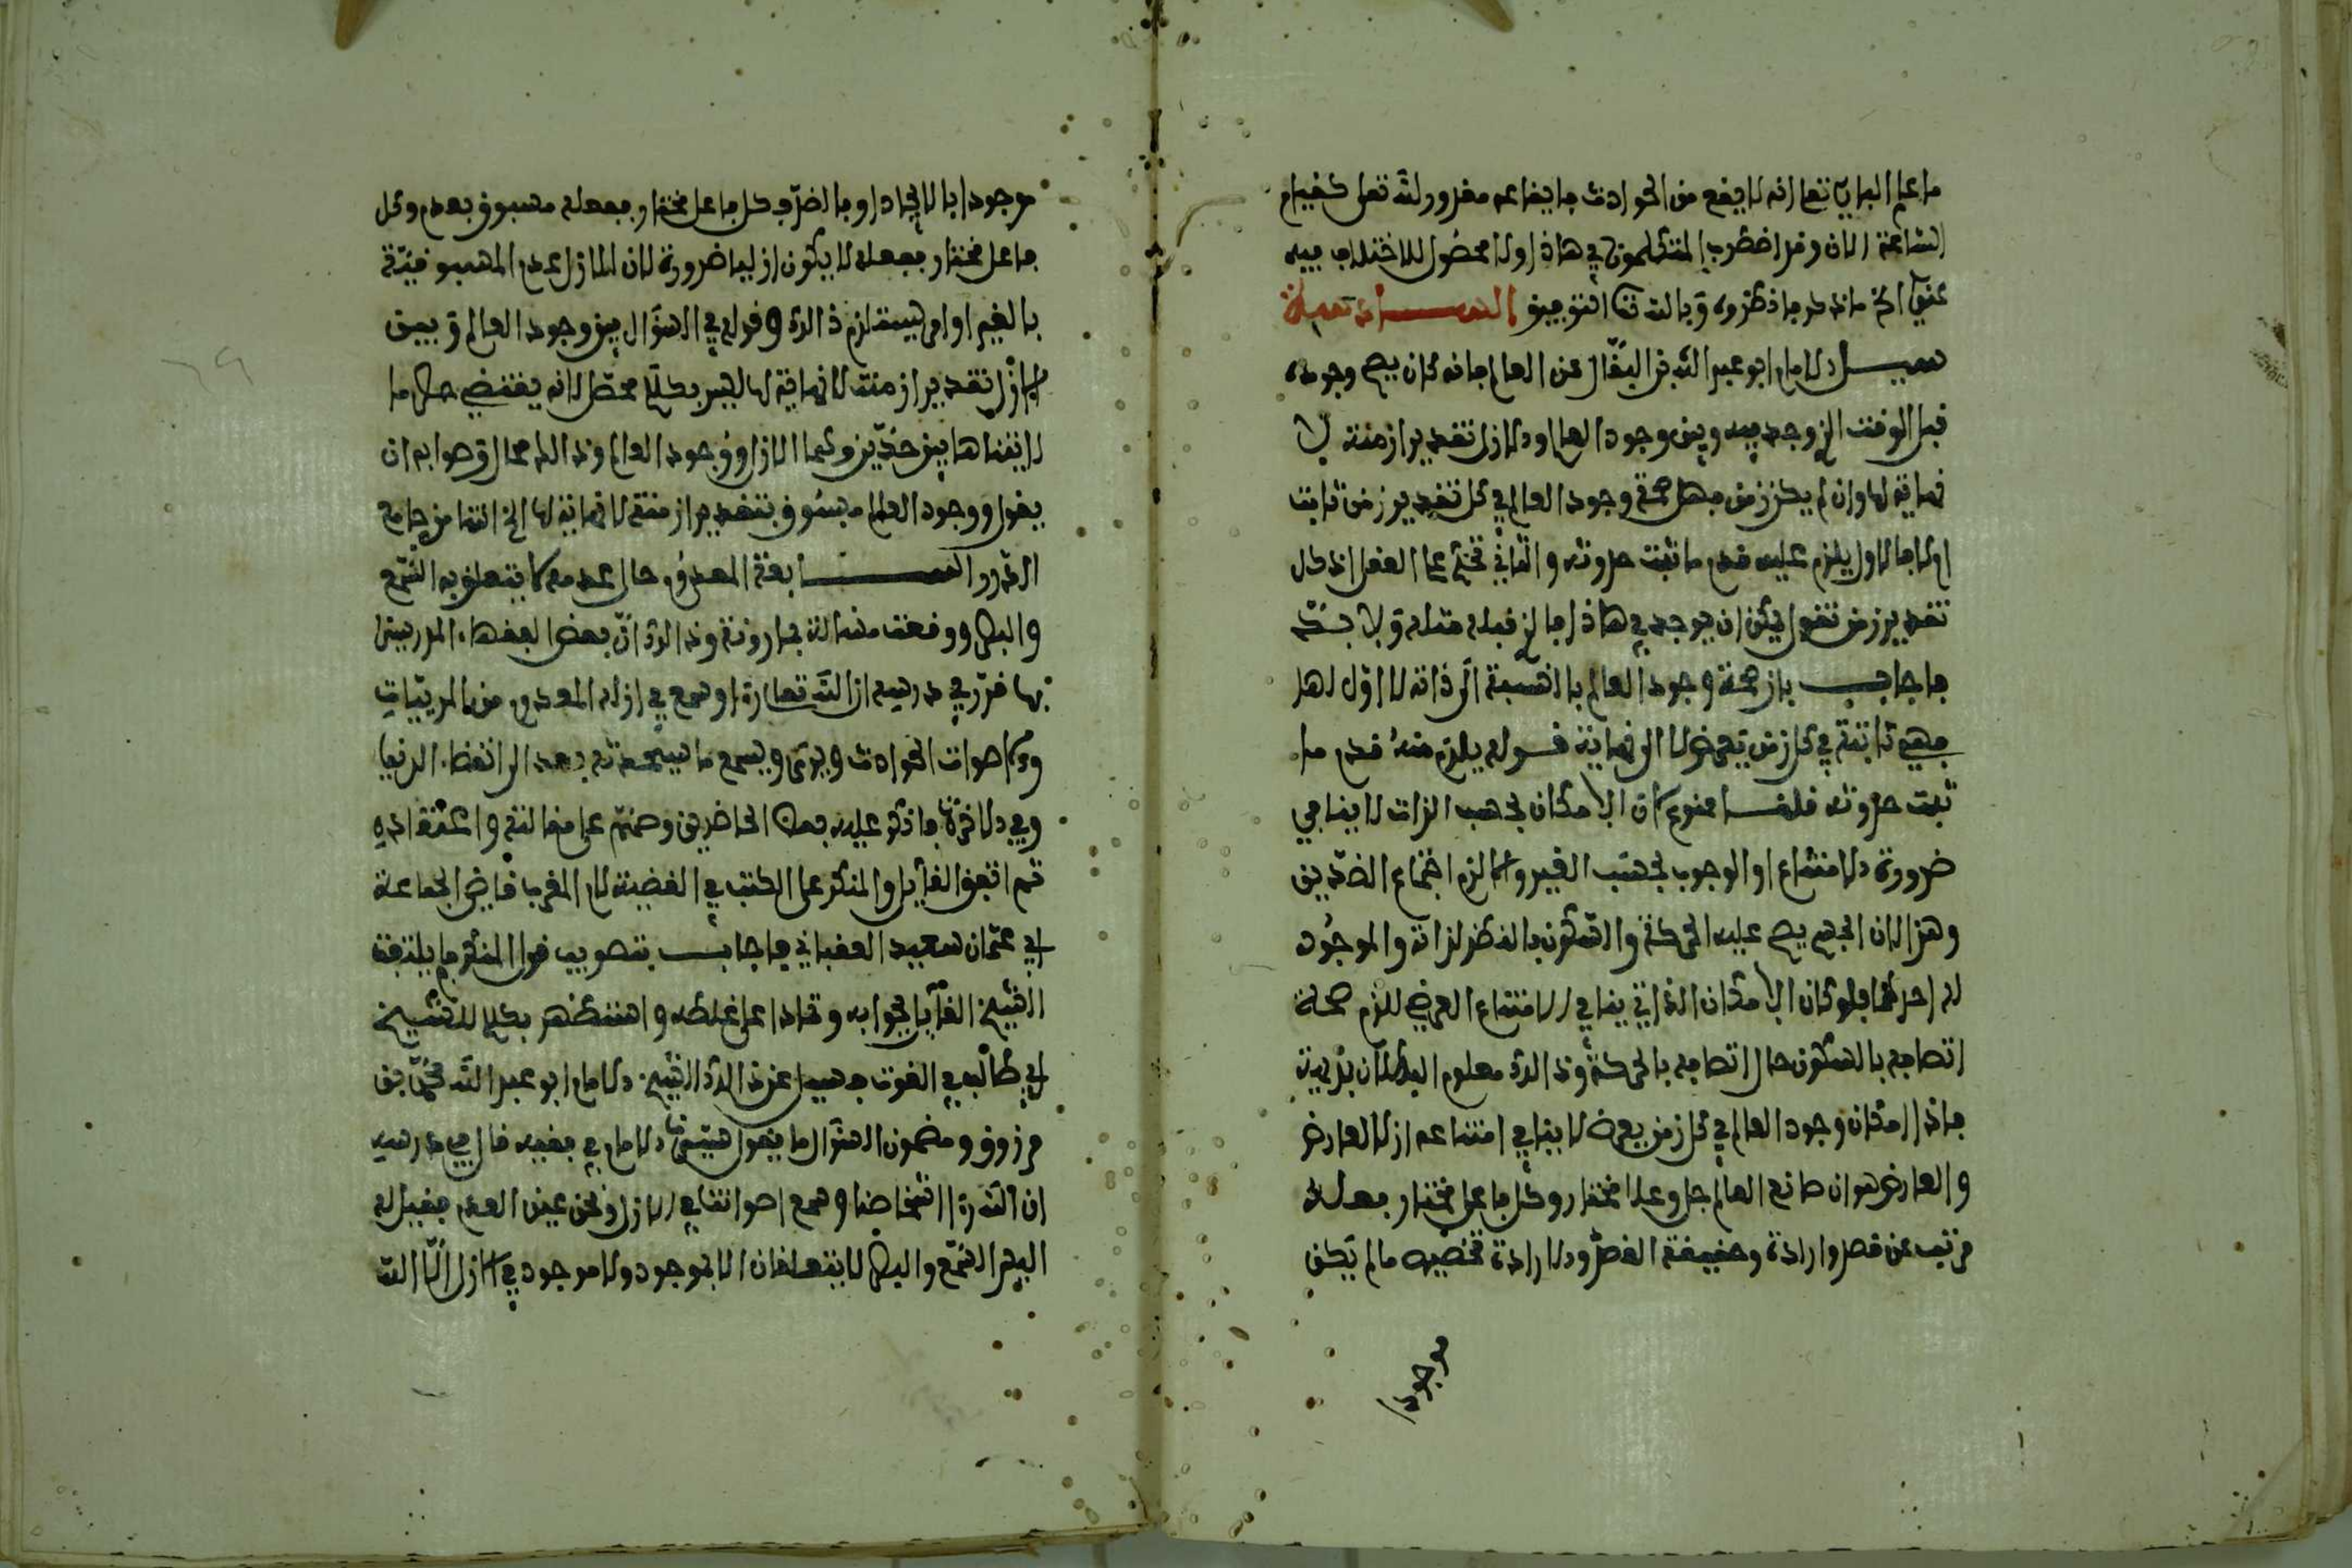 ما علم الباري تعالى انه لا يقع من الحوادث فايقاعه مقدور لله تعلى كقيام
الساعة الان وقد اضطرب المتكلمون في هاذا ولا محصول للاختلاف فيه
عند مادكر ما ذكروه وبالله التوفيق السادسة
سيل الامام ابو عبد الله بن البقال عن العالم فانه كان يصح وجوده
قبل الوقت الذي وجد فيه وبين وجود العالم والازل تقدير ازمنة لا
نهاية لها وان لم يكن زمن فهل صحة وجود العالم في كل تقدير زمن ثابت
اولا فالاول يلزم عليه قدم ما ثبت حدوثه والثاني تحكم على العقل اذ كل
تقدير زمن تقول يمكن ان يوجد في هاذا فالذي قبله مثله ولا بد
فاجاب بان صحة وجود العالم بالنسبة الى ذاته لا اول لها
فهي ثابتة في كل زمن يعرض لا الى نهاية قوله يلزم منه قدم ما
ثبت حدوثه قلنا ممنوع لان الامكان بحسب الذات لا ينافي
ضرورة الامتناع او الوجوب بحسب الغير والا لزم اجتماع الضدين
وهذا لان الجسم يصح عليه الحركة والسكون بالنظر لذاته والموجود
له احدهما فلو كان الامكان الذاتي ينافي الامتناع العرضي للزم صحة
اتصافه بالسكون حال اتصافه بالحركة وذالك معلوم البطلان بديهية
فاذا امكان وجود العالم في كل زمن يعرض لا ينافي امتناعه ازلا لعارض
والعارض هو ان صانع العالم جل وعلا مختار وكل فاعل مختار فعله
مرتب عن قصد وارادة وحقيقة القصد والارادة تخصيص ما لم يكن
موجودا
موجودا بالايجاد او بالضرب كل فاعل مختار ففعله مسبوق بعدم وكل
فاعل مختار ففعله لا يكون ازليا ضرورة لان الازل عدم المسبوقية
بالغير اوامر يستلزم ذالك وقوله في السؤال بين وجود العالم وبين
الازل تقدير ازمنة لا نهاية لها ليس بكلام محصل لانه يقتضي حصر ما
لا يتناها بين حدين وهما الازل ووجود العالم وذالك محال وصوابه ان
يقول ووجود العالم مسبوق بتقدير ازمنة لا نهاية لها الخ انتها من جامع
الدرر السابعة المعدوم حال عدمه لا يتعلق به السمع
والبصر ووقعت مسالة بمازونة وذالك ان بعض الفقهاء المدرسين
بها قرر في درسه ان الله تعالى راء وسمع في ازله المعدوم من المرييات
واصوات الحوادث ويرى ويسمع ما سيحدثه بعد انقضاء الدنيا
وفي الاخرة فانكر عليه بعض الحاضرين وصمم على مقالته واعتقاده
ثم اتفق القايل والمنكر على الكتب في القضية لامام المغرب قاضي الجماعة
ابي عثمان سعيد العقباني فاجاب بتصويب قول المنكر فلم يلتفت
الشيخ القايل لجوابه وتمادا على غلطه واستظهر بكلام للشيخ
ابي طالب في القوت فسيل عن ذالك الشيخ الامام ابو عبد الله محمد بن
مرزوق ومضمون السؤال ما يقول سيدنا الامام في فقيه قال في درسه
ان الله راء اشخاصنا وسمع اصواتنا في الازل ونحن عين العدم فقيل له
اليس السمع والبصر لا يتعلقان الا بموجود ولا موجود في الازل الا الله